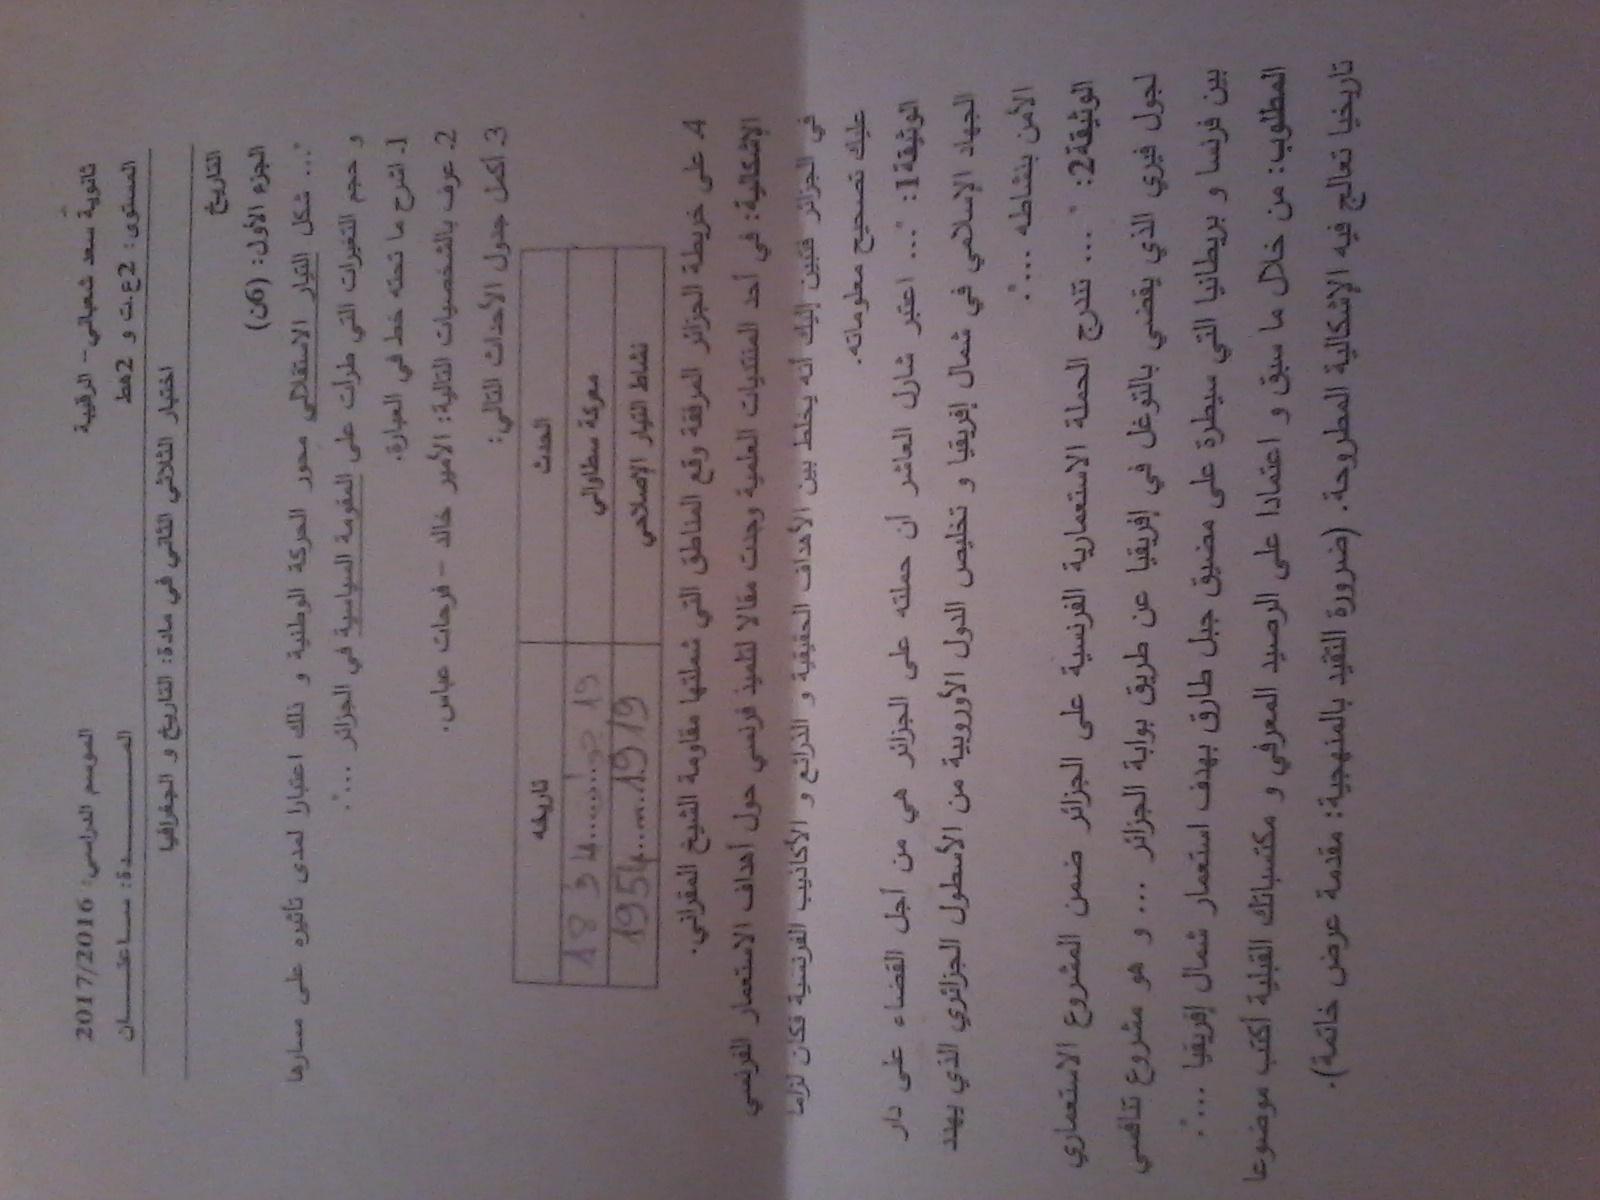 ثانوية سعد شعباني- الرقيبة الموسم الدراسي: 2017/2016
المستوى: 2ع.ت و 2هط المـــــــــــــدة: ســـاعتـــــــان
اختبار الثلاثي الثاني في مادة: التاريخ و الجغرافيا
التاريخ
الجزء الأول: (6ن)
"... شكل التيار الاستقلالي محور الحركة الوطنية و ذلك اعتبارا لمدى تأثيره على مسارها
و حجم التغيرات التي طرأت على المقومة السياسية في الجزائر ...".
1. اشرح ما تحته خط في العبارة.
2. عرف بالشخصيات التالية: الأمير خالد - فرحات عباس.
3. أكمل جدول الأحداث التالي:
الحدث تاريخه
معركة سطاوالي 19
نشاط التيار الإصلاحي 1954.....1919
4. على خريطة الجزائر المرفقة وقع المناطق التي شملتها مقاومة الشيخ المقراني.
الإشكالية: في أحد المنتديات العلمية وجدت مقالا لتلميذ فرنسي حول أهداف الاستعمار الفرنسي
في الجزائر فتبين إليك أنه يخلط بين الأهداف الحقيقية و الذرائع و الأكاذيب الفرنسية فكان لزاما
عليك تصحيح معلوماته.
الوثيقة1: "... اعتبر شارل العاشر أن حملته على الجزائر هي من أجل القضاء على دار
الجهاد الإسلامي في شمال إفريقيا و تخليص الدول الأوروبية من الأسطول الجزائري الذي يهدد
الأمن بنشاطه ...".
الوثيقة2: "... تندرج الحملة الاستعمارية الفرنسية على الجزائر ضمن المشروع الاستعماري
لجول فيري الذي يقضي بالتوغل في إفريقيا عن طريق بوابة الجزائر ... و هو مشروع تنافسي
بين فرنسا و بريطانيا التي سيطرة على مضيق جبل طارق بهدف استعمار شمال إفريقيا ...".
المطلوب: من خلال ما سبق و اعتمادا على الرصيد المعرفي و مكتسباتك القبلية أكتب موضوعا
تاريخيا تعالج فيه الإشكالية المطروحة. (ضرورة التقيد بالمنهجية: مقدمة عرض خاتمة).